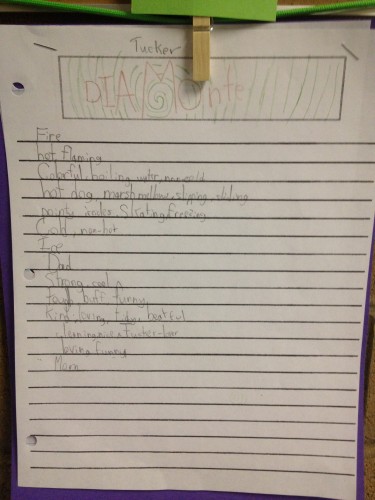 Tucker
DIAMOnte
Fire
hot, flaming
Colorful, boiling, water, non-cold
hot dog, marshmellow, slipping, sliding
pointy, icicles, Skating, freezing
Cold, non-hot
Ice
Dad
Strong, cool
tough, buff, funny,
Kind, loving,
Tucker-bear
loving, funny
Mom